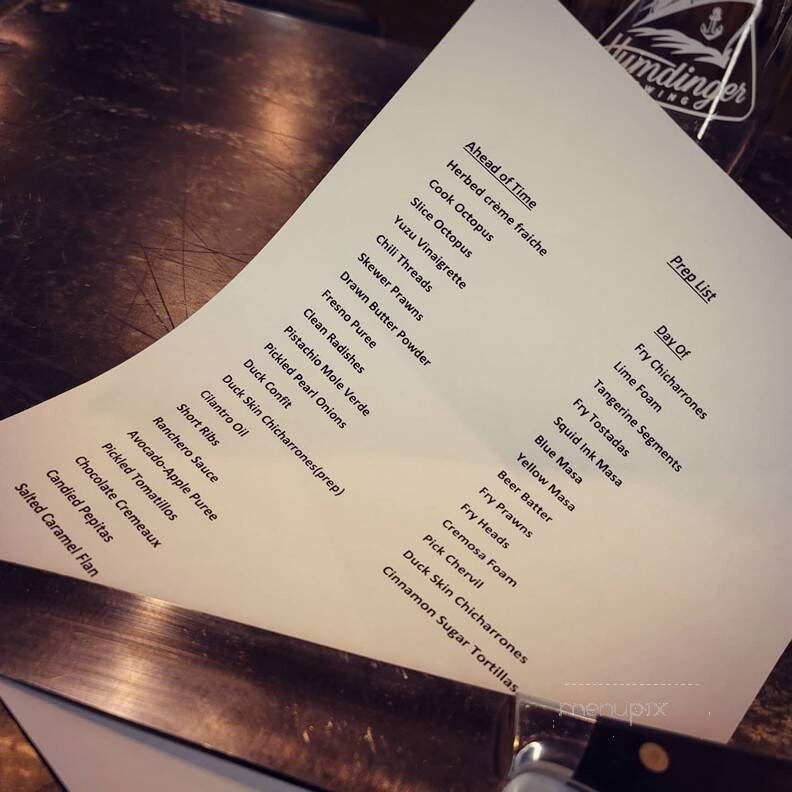 Humdinger
Prep List
Ahead of Time
Herbed crème fraiche
Cook Octopus
Slice Octopus
Yuzu Vinaigrette
Chili Threads
Skewer Prawns
Drawn Butter Powder
Fresno Puree
Clean Radishes
Pistachio Mole Verde
Pickled Pearl Onions
Duck Confit
Duck Skin Chicharrones(prep)
Cilantro Oil
Short Ribs
Ranchero Sauce
Avocado-Apple Puree
Pickled Tomatillos
Chocolate Cremeaux
Candied Pepitas
Salted Caramel Flan
Day Of
Fry Chicharrones
Lime Foam
Tangerine Segments
Fry Tostadas
Squid Ink Masa
Blue Masa
Yellow Masa
Beer Batter
Fry Prawns
Fry Heads
Cremosa Foam
Pick Chervil
Duck Skin Chicharrones
Cinnamon Sugar Tortillas
menupix